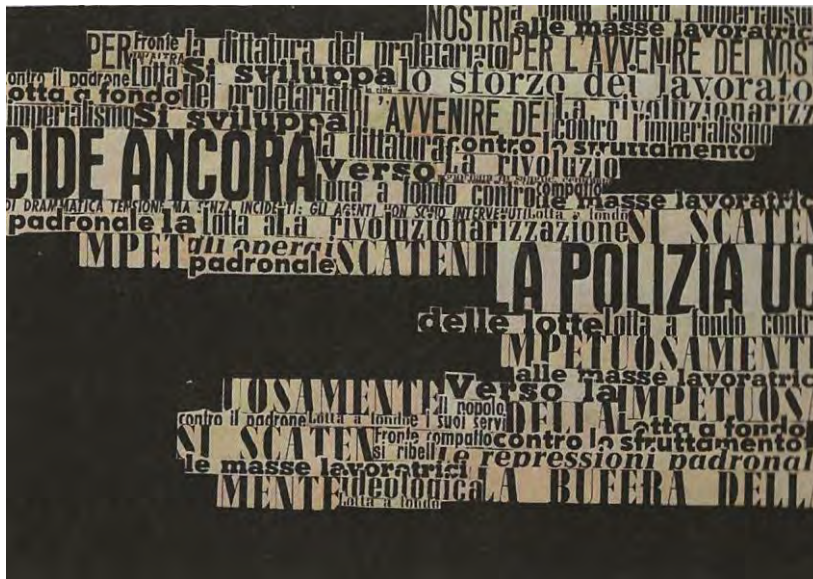 NOSTRI a fondo contro l'imperialismo
alle masse lavoratric
PER Fronte la dittatura del proletariato PER L'AVVENIRE DEI NOST
contro il padrone Lotta Si sviluppa lo sforzo dei lavorato
otta a fondo del proletariat L'AVVENIRE DEI La rivoluzionarizz
imperialismo Si sviluppa contro l'imperialismo
CIDE ANCORA la dittatura contro lo sfruttamento
verso La rivoluzio
lotta a fondo contro compatto le masse lavoratric
DI DRAMMATICA TENSIONE MA SENZA INCIDENTI: GLI AGENTI NON SONO INTERVENUTI Lotta a fondo
padronale la lotta a La rivoluzionarizzazione SI SCATEN
MPET gli operai SCATENI LA POLIZIA UC
padronale
delle lotte Lotta a fondo contr
MPETUOSAMENT
alle masse lavoratric
UOSAMENTE Verso la IMPETUOS
contro il padrone Lotta a fondo Il popolo i suoi servi DELLA Lotta a fondo
SI SCATEN Fronte compatto contro lo sfruttamento
si ribell Le repressioni padronal
le masse lavoratrici
MENTE ideologica LA BUFERA DELL
Lotta a fondo